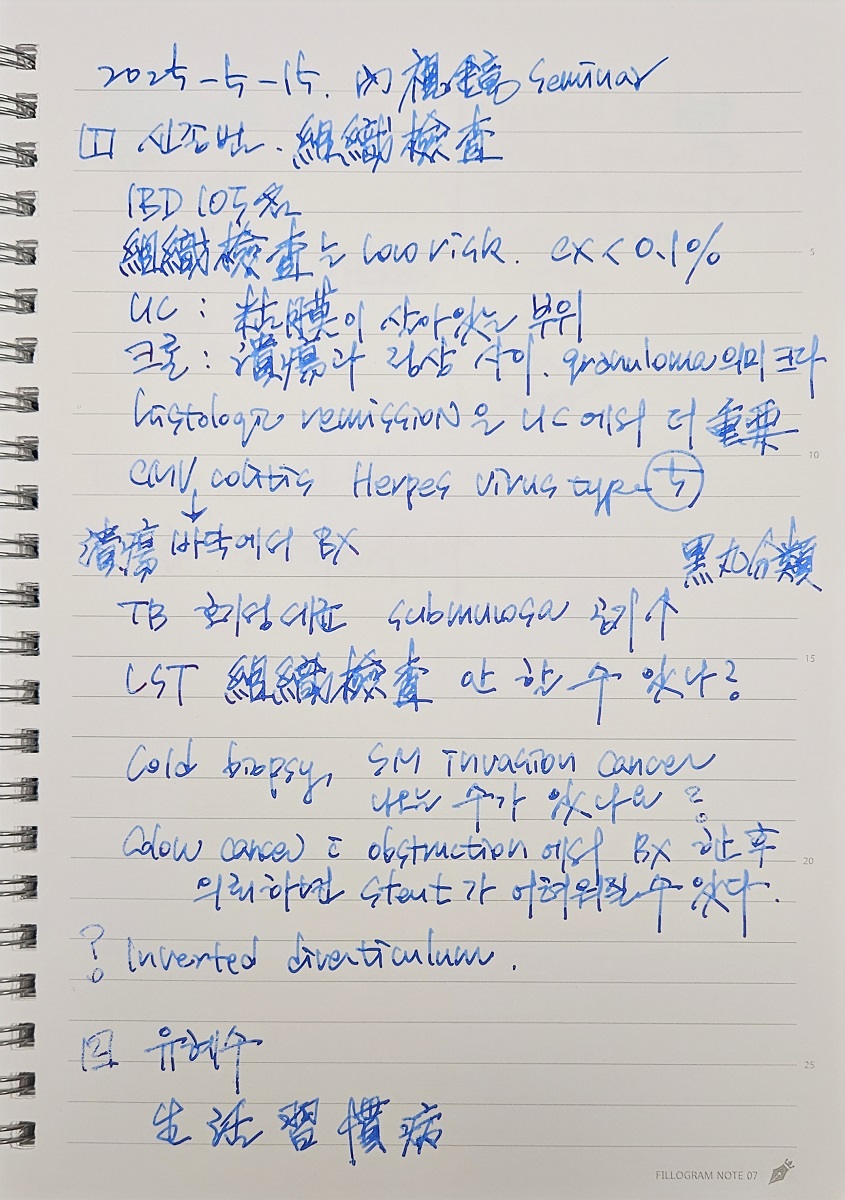 2025-5-15. 內視鏡 seminar
1 신정빈. 組織檢查
IBD 105名
組織檢查는 low risk. cx < 0.1%
5
UC : 粘膜이 살아있는 부위
크론 : 潰瘍과 정상 사이. granuloma 의미 크다
histologic remission은 UC에서 더 重要
10
CMV colitis Herpes virus type 5
↓
潰瘍 바닥에서 BX
黑丸分類
TB submucosa 공기 ↑
15
LST 組織檢查 안 할 수 있나?
Cold biopsy, SM invasion cancer
나오는 수가 있나요?
Colon cancer c̄ obstruction에서 BX 한 후
20
의뢰하면 stent가 어려워질 수 있다.
? Inverted diverticulum.
25
2 유현수
生活習慣病
FILLOGRAM NOTE 07